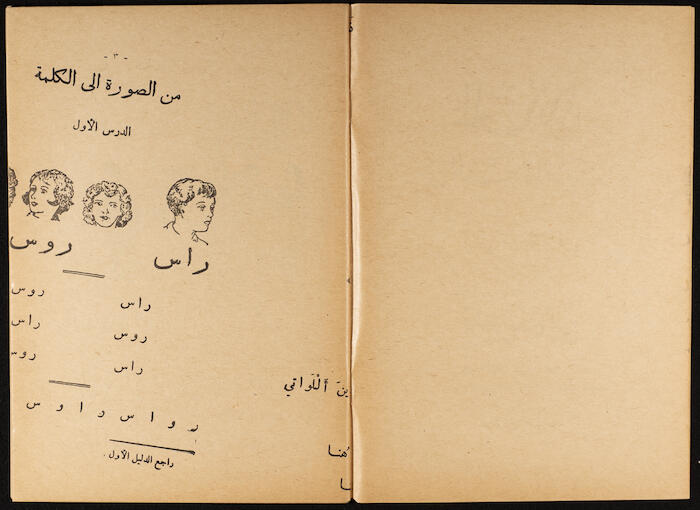 - ٣ -
من الصورة الى الكلمة
الدرس الأول
راس روس
راس روس
روس راس
راس روس
ر و ا س د ا و س
راجع الدليل الأول .
ينَ أَللَواتي
هُنا
ـا